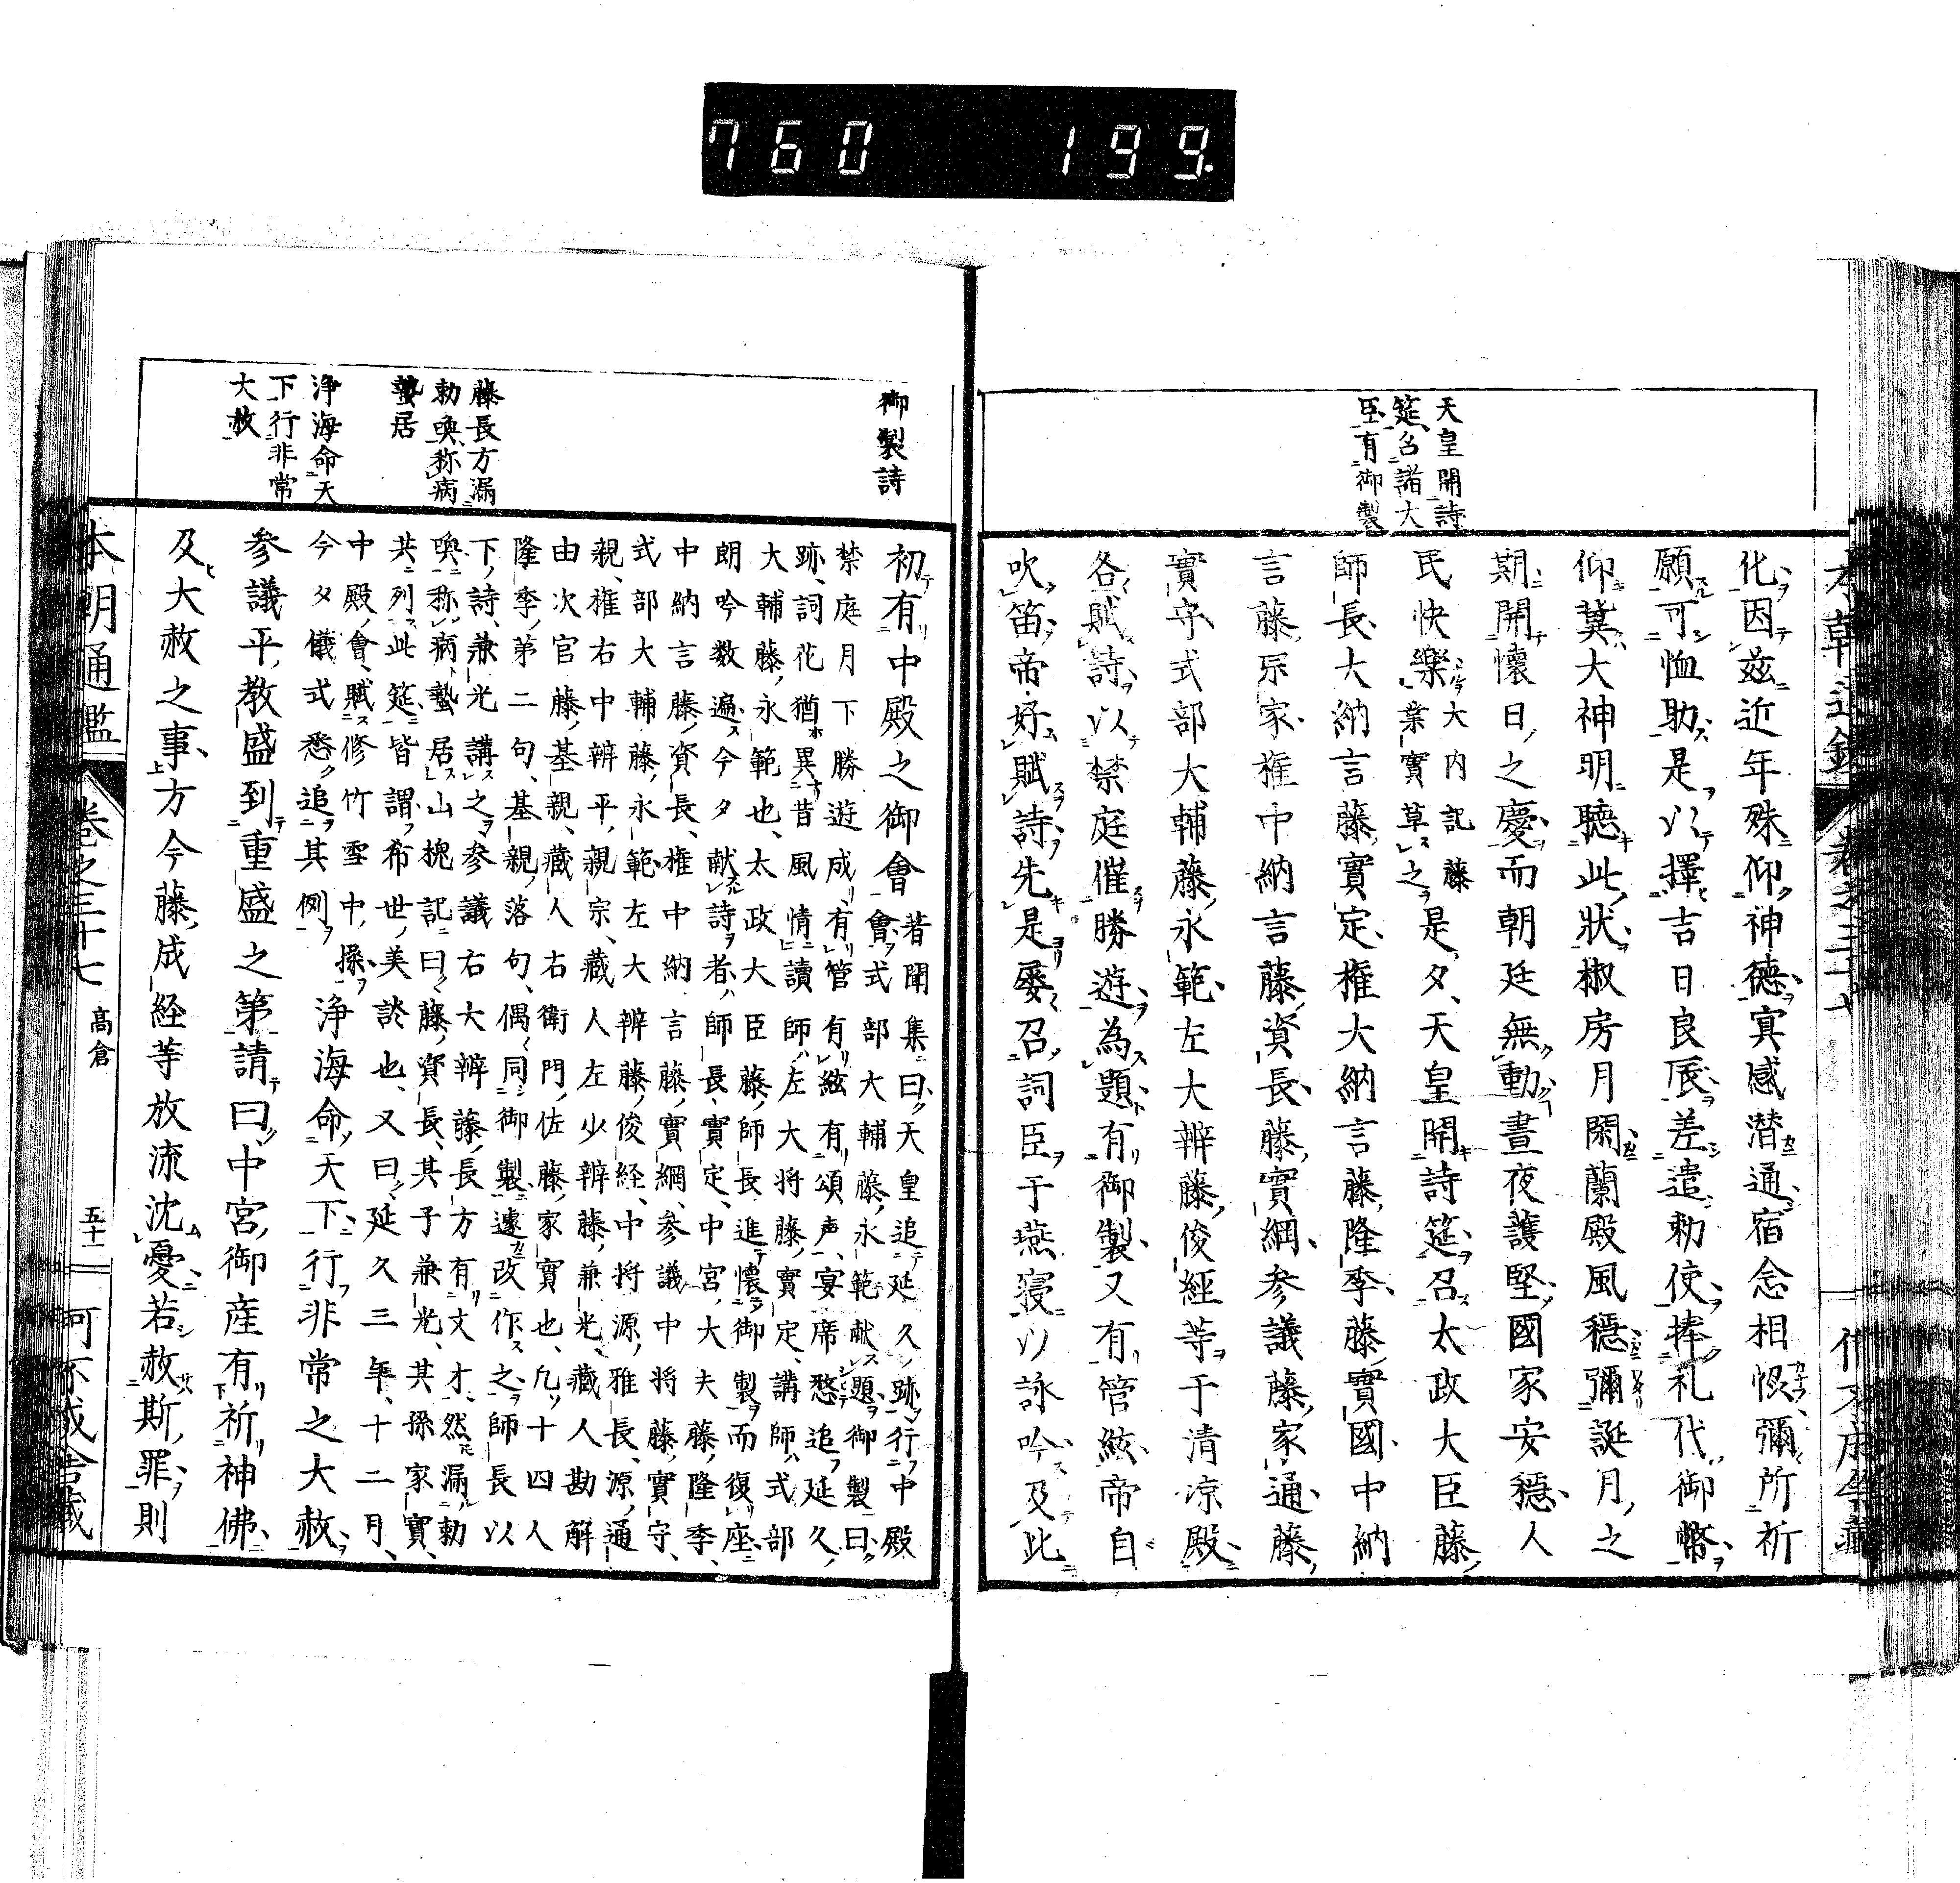 760 199.
天皇開詩
筵召諸大
臣有御製
化因茲近年殊仰神德冥感潜通宿念相恢彌所祈
願可恤助是以擇吉日良辰差遣勅使捧礼代御幣
仰冀大神明聴此狀椒房月閑蘭殿風穩彌誕月之
期開懐日之慶而朝廷無動晝夜護堅國家安穩人
民快樂大内記藤業實草之是夕天皇開詩筵召太政大臣藤
師長大納言藤實定権大納言藤隆季藤實國中納
言藤宗家権中納言藤資長藤實綱参議藤家通藤
實守式部大輔藤永範左大辨藤俊経等于清凉殿
各賦詩以禁庭催勝遊為題有御製又有管絃帝自
吹笛帝好賦詩先是屡召詞臣于燕寝以詠吟及此
御製詩
藤長方漏
勅喚称病
蟄居
浄海命天
下行非常
大赦
初有中殿之御會著聞集曰天皇追延久跡行中殿
會式部大輔藤永範献題御製曰
禁庭月下勝遊成有管有絃有頌声宴席愁追延久
跡詞花猶異昔風情讀師左大将藤實定講師式部
大輔藤永範也太政大臣藤師長進懐御製而復座
朗吟数遍今夕献詩者師長實定中宮大夫藤隆季
中納言藤資長権中納言藤實綱参議中将藤實守
式部大輔藤永範左大辨藤俊経中将源雅長源通
親権右中辨平親宗藏人左少辨藤兼光藏人勘解
由次官藤基親藏人右衛門佐藤家實也凡十四人
隆季第二句基親落句偶同御製遽改作之師長以
下詩兼光講之参議右大辨藤長方有文才然漏勅
喚称病蟄居山槐記曰藤資長其子兼光其孫家實
共列此筵皆謂希世美談也又曰延久三年十二月
中殿會賦修竹雪中操
今夕儀式悉追其例浄海命天下行非常之大赦
参議平教盛到重盛之第請曰中宮御産有祈神佛
及大赦之事方今藤成経等放流沈憂若赦斯罪則
本朝通鑑 巻之三十七 高倉 五十一